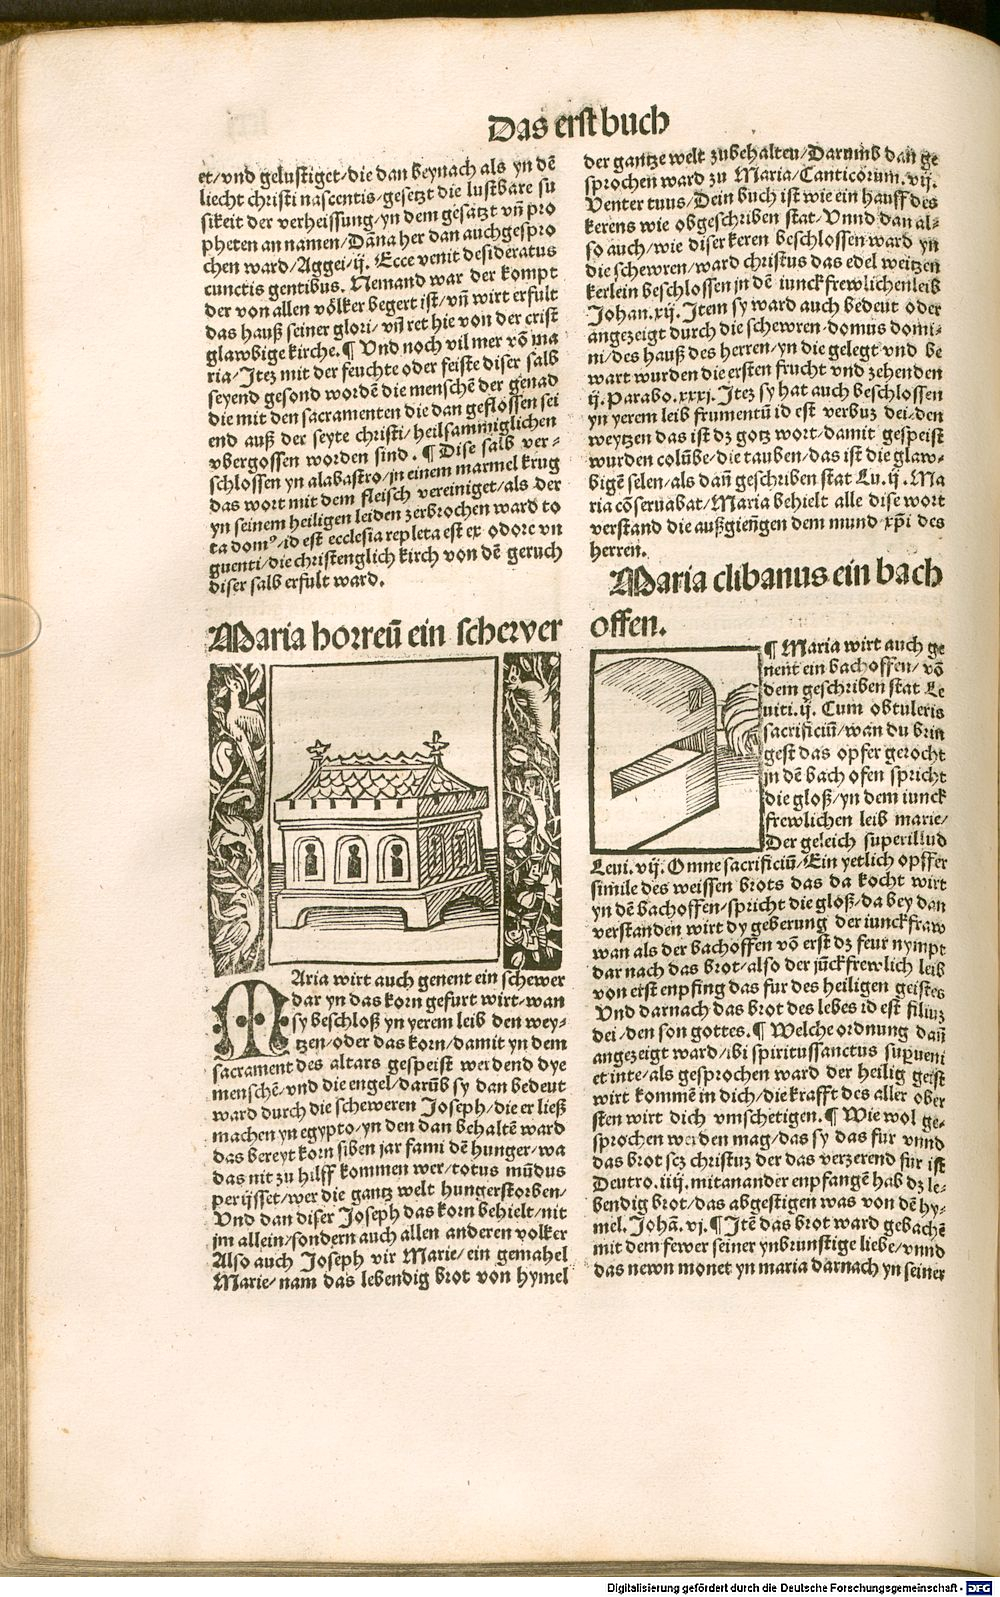 Das erst buch
et/vnd gelustiget/die dan beynach als yn dē
liecht christi nascentis/gesetzt die lustbare su
sikeit der verheissung/yn dem gesatzt vñ pro
pheten an namen/Dāna her dan auchgespro
chen ward/Aggei/ij. Ecce venit desideratus
cunctis gentibus. Nemand war der kompt
der von allen völker begert ist/vñ wirt erfult
das hauß seiner glori/vñ ret hie von der crist
glawbige kirche.¶ Vnd noch vil mer vō ma
ria/Itez mit der feuchte oder feiste diser salb
seyend gesond wordē die menschē der genad
die mit den sacramenten die dan geflossen sei
end auß der seyte christi/heilsammiglichen
vbergossen worden sind.¶ Dise salb ver-
schlossen yn alabastro/jn einem marmel krug
das wort mit dem fleisch vereiniget/als der
yn seinem heiligen leiden zerbrochen ward to
ta domꝰ/id est ecclesia repleta est ex odore vn
guenti/die christenglich kirch von dē geruch
diser salb erfult ward.
Maria horreū ein schewer
Aria wirt auch genent ein schewer
dar yn das korn gefurt wirt/wan
sy beschloß yn yerem leib den wey-
tzen/oder das korn/damit yn dem
sacrament des altars gespeist werdend dye
menschē/vnd die engel/darūb sy dan bedeut
ward durch die scheweren Joseph/die er ließ
machen yn egypto/yn den dan behaltē ward
das bereyt korn siben jar fami dē hunger/wa
das nit zu hilff kommen wer/totus mūdus
perijsset/wer die gantz welt hungerstorben/
Vnd dan diser Joseph das korn behielt/nit
jm allein/sondern auch allen anderen volker
Also auch Joseph vir Marie/ein gemahel
Marie/nam das lebendig brot von hymel
der gantze welt zubehalten/Darumb dan ge
sprochen ward zu Maria/Canticorum.vij.
Venter tuus/Dein buch ist wie ein hauff des
kerens wie obgeschriben stat/Vnnd dan al-
so auch/wie diser keren beschlossen ward yn
die schewren/ward christus das edel weitzen
kerlein beschlossen jn dē iunckfrewlichenleib
Johan.xij. Item sy ward auch bedeut oder
angezeigt durch die schewren/domus domi-
ni/des hauß des herren/yn die gelegt vnd be
wart wurden die ersten frucht vnd zehenden
ij. Parabo.xxxj. Itez sy hat auch beschlossen
yn yerem leib frumentū id est verbuz dei/den
weytzen das ist dz gotz wort/damit gespeist
wurden colūbe/die tauben/das ist die glaw-
bigē selen/als dañ geschriben stat Lu.ij. Ma
ria cōseruabat/Maria behielt alle dise wort
verstand die außgieñgen dem mund xp̄i des
herren.
Maria clibanus ein bach
offen.
¶ Maria wirt auch ge
nent ein bachoffen/vō
dem geschriben stat Le
uiti.ij. Cum obtuleris
sacrificiū/wan du brin
gest das opfer gerocht
jn dē bach ofen spricht
die gloß/yn dem iunck
frewlichen leib marie/
Der geleich superillud
Leui.vij. Omne sacrificiū/Ein yetlich opffer
simile des weissen brots das da kocht wirt
yn dē bachoffen/spricht die gloß/da bey dan
verstanden wirt dy geberung der iunckfraw
wan als der bachoffen vō erst dz feur nympt
dar nach das brot/also der jūckfrewlich leib
von erst enpfing das fur des heiligen geistes
Vnd darnach das brot des lebes id est filiuz
dei/den son gottes.¶ Welche ordnung dañ
angezeigt ward/ibi spiritussanctus supueni
et inte/als gesprochen ward der heilig geist
wirt kommē in dich/die krafft des aller ober
sten wirt dich vmschetigen.¶ Wie wol ge-
sprochen werden mag/das sy das fur vnnd
das brot scz christuz der das verzerend für ist
Deutro.iiij.mitanander enpfangē hab dz le-
bendig brot/das abgestigen was von dē hy-
mel. Johā.vj.¶ Itē das brot ward gebachē
mit dem fewer seiner ynbrunstige liebe/vnnd
das newn monet yn maria darnach yn seiner
Digitalisierung gefördert durch die Deutsche Forschungsgemeinschaft - DFG